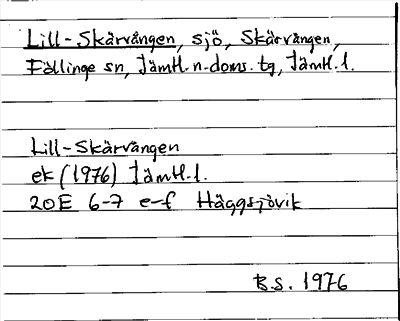 Lill-Skärvången, sjö, Skärvången,
Föllinge sn, Jämtl. n. doms. tg, Jämtl. l.
Lill-Skärvången
ek (1976) Jämtl. l.
20E 6-7 e-f Häggsjövik
B.S. 1976